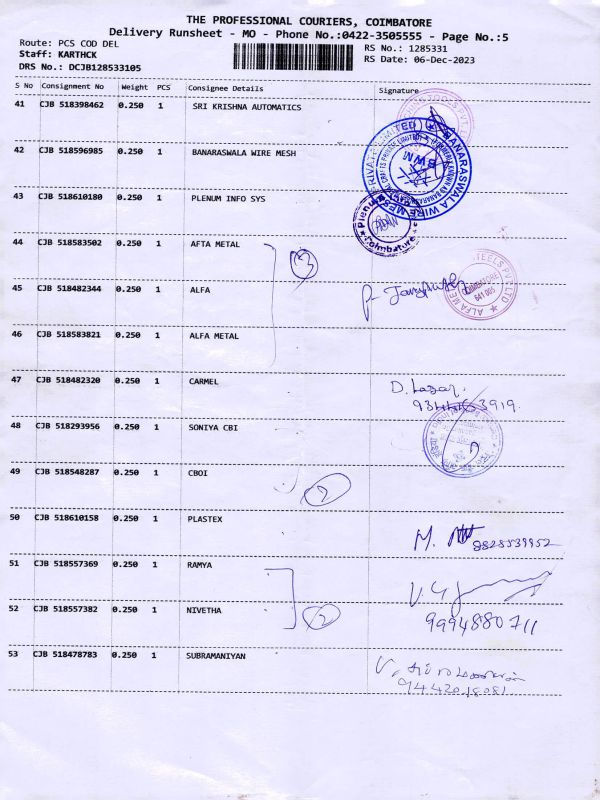 THE PROFESSIONAL COURIERS, COIMBATORE
Delivery Runsheet - MO - Phone No.:0422-3505555 - Page No.:5
Route: PCS COD DEL
Staff: KARTHCK
DRS No.: DCJB128533105
RS No.: 1285331
RS Date: 06-Dec-2023
S No Consignment No Weight PCS Consignee Details Signature
41 CJB 518398462 0.250 1 SRI KRISHNA AUTOMATICS
42 CJB 518596985 0.250 1 BANARASWALA WIRE MESH
BANARASWALA WIRE MESH PRIVATE LIMITED
BWM
43 CJB 518610180 0.250 1 PLENUM INFO SYS
Plenum
Coimbatore
44 CJB 518583502 0.250 1 AFTA METAL
3
45 CJB 518482344 0.250 1 ALFA
ALFA METAL STEELS PVT LTD
COIMBATORE
641 005
46 CJB 518583821 0.250 1 ALFA METAL
47 CJB 518482320 0.250 1 CARMEL
D. Lazar.
48 CJB 518293956 0.250 1 SONIYA CBI
49 CJB 518548287 0.250 1 CBOI
2
50 CJB 518610158 0.250 1 PLASTEX
M.
9828539952
51 CJB 518557369 0.250 1 RAMYA
52 CJB 518557382 0.250 1 NIVETHA
2
9994880711
53 CJB 518478783 0.250 1 SUBRAMANIYAN